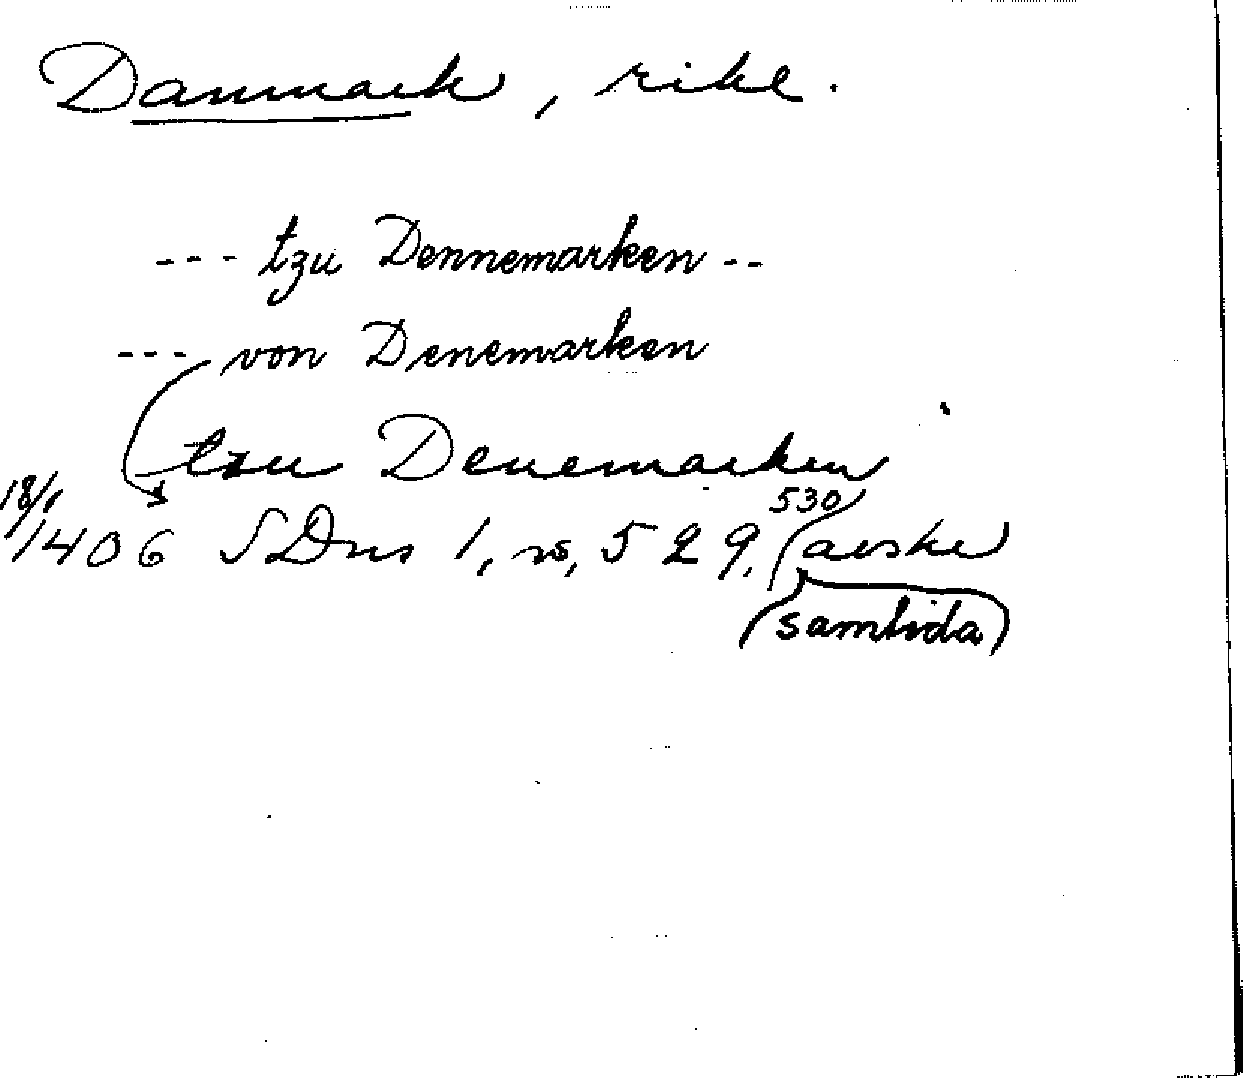 Danmark, rike.
--- tzu Dennemarken --
--- von Denemarken
tzu Denemarken
18/1 530
1406 SDns 1, s, 529. (avskr
(samtida)